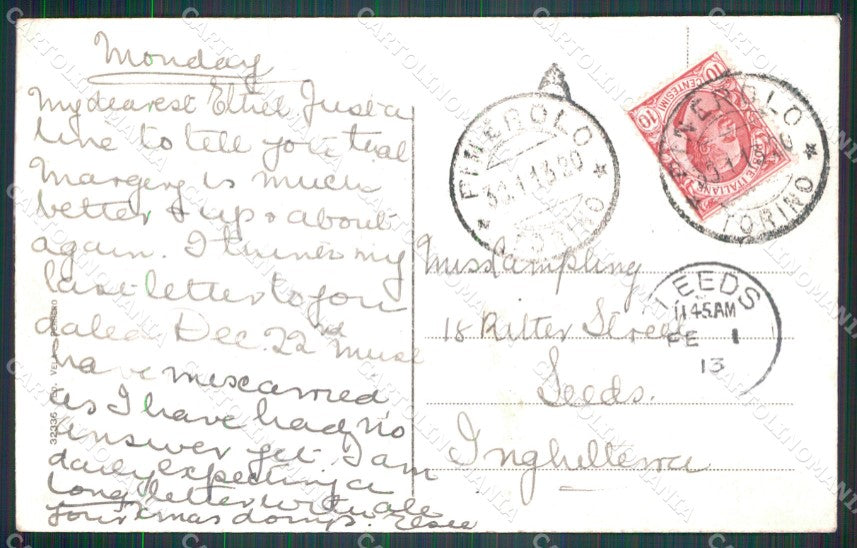 Monday
My dearest Ethel Just a
line to tell you that
Margery is much
better & up & about
again. I
last letter to you
dated Dec. 22nd must
have miscarried
as I have had no
answer yet. I am
daily expecting a
long letter with all
your Xmas doings. Elsie
32336
PINEROLO
30.1.13.20
TORINO
10
CENTESIMI
10
POSTE ITALIANE
PINEROLO
TORINO
LEEDS
11.45 AM
FE 1
13
Miss Sampling
18 Ritter Street
Leeds.
Inghilterra
CARTOLINOMANIA